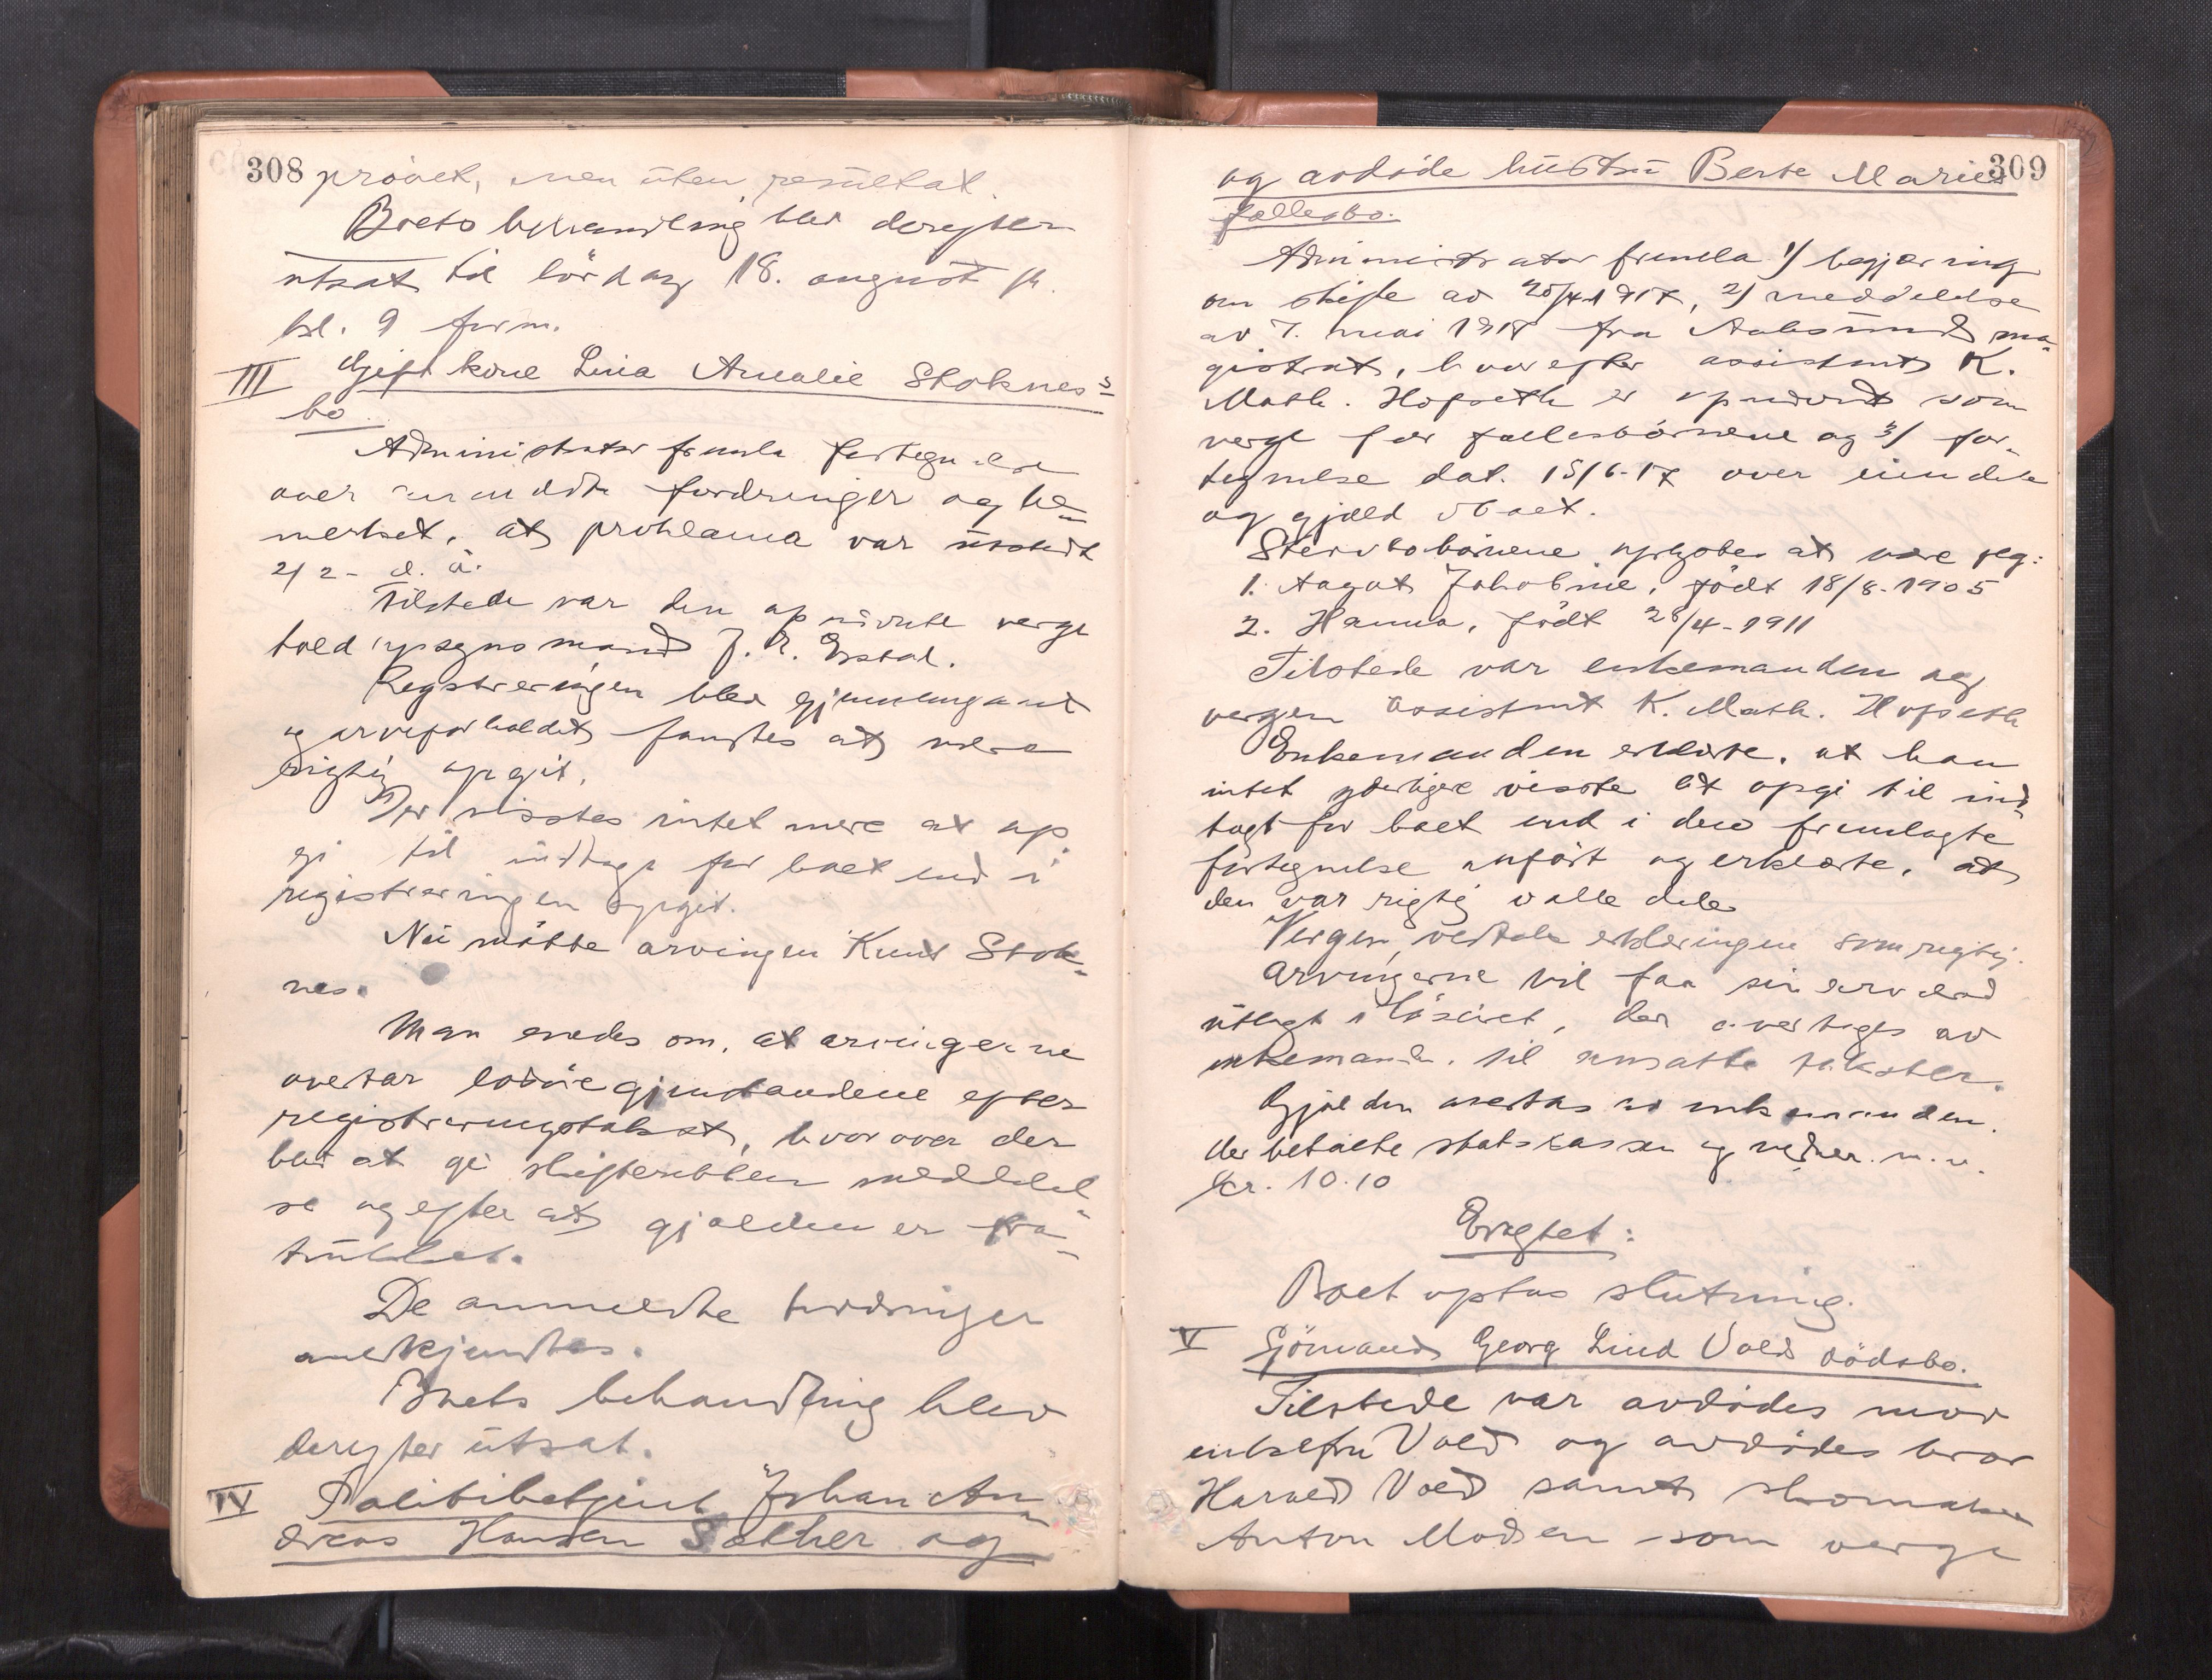 308
prövet, men uten resultat.
Boets behandling blev derefter
utsat til lördag 18. august
kl. 9 form.
III Gift kone Lina Amalie Stoknes's
bo
Administrator fremla fortegnelse
over anmeldte fordringer og be-
merket, at proklama var utstedt
2/2 - d. å.
Tilstede var den opnævnte verge
toldopsynsmand J. R. Erstad.
Registreringen blev gjennemgaat
og arveforholdet fandtes at være
rigtig opgit.
Der visstes intet mere at op-
gi til indtægt for boet end i
registreringen opgit.
Nu mötte arvingen Knut Stok-
nes.
Man enedes om, at arvingerne
overtar lösöregjenstandene efter
registreringstakst, hvorover der
blir at gi skifteretten meddelel-
se og efter at gjælden er fra-
trukket.
De anmeldte fordringer
anerkjendtes.
Boets behandling blev
derefter utsat.
IV Politibetjent Johan An-
dreas Hansen Sæther og
309
og avdöde hustru Berte Maries
fællesbo.
Administrator fremla 1/ begjæring
om skifte av 20/4 1917, 2/ meddelelse
av 7. mai 1917 fra Aalesunds ma-
gistrat, hvorefter assistent K.
Math. Hofseth er opnævnt som
verge for fællesbörnene og 3/ for-
tegnelse dat. 15/6-17 over eiendele
og gjæld i boet.
Stervbobörnene opgöbes at være fög:
1. Aagot Jakobine, födt 18/8-1905
2. Hanna, födt 28/4-1911
Tilstede var enkemanden og
vergen assistent K. Math. Hofseth
Enkemanden erklærte, at han
intet yderligere visste at opgi til ind-
tægt for boet end i den fremlagte
fortegnelse anfört og erklærte, at
den var rigtig i alle dele
Vergen vedtok erklæringen som rigtig.
Arvingerne vil faa sin arvelod
utlagt i lösöret, der overtages av
enkemanden til ansatte takster.
Gjælden overtas av enkemanden.
der betalte statskassen og vidner m. v.
Kr. 10.10
Eragtet:
Boet optas slutning.
V Sjömand Georg Lind Volds dödsbo.
Tilstede var avdödes mor
enkefru Vold og avdödes bror
Harald Vold samt skomaker
Anton Madsen som verge